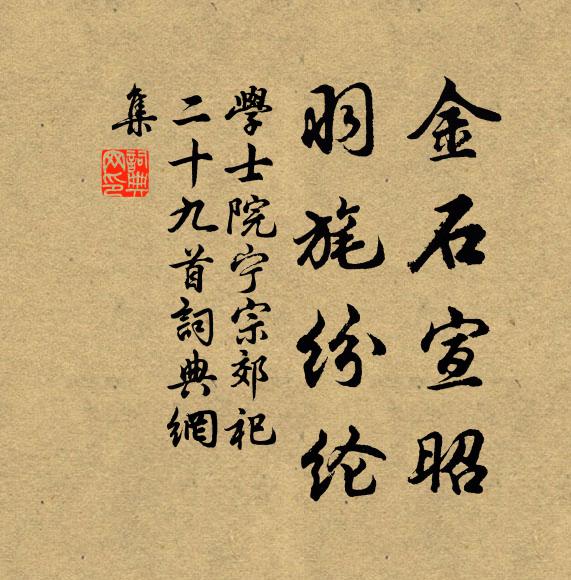 金石宣昭
羽旄纷纶
學士院宁宗郊祀
二十九首詞典網
集
詞典網印